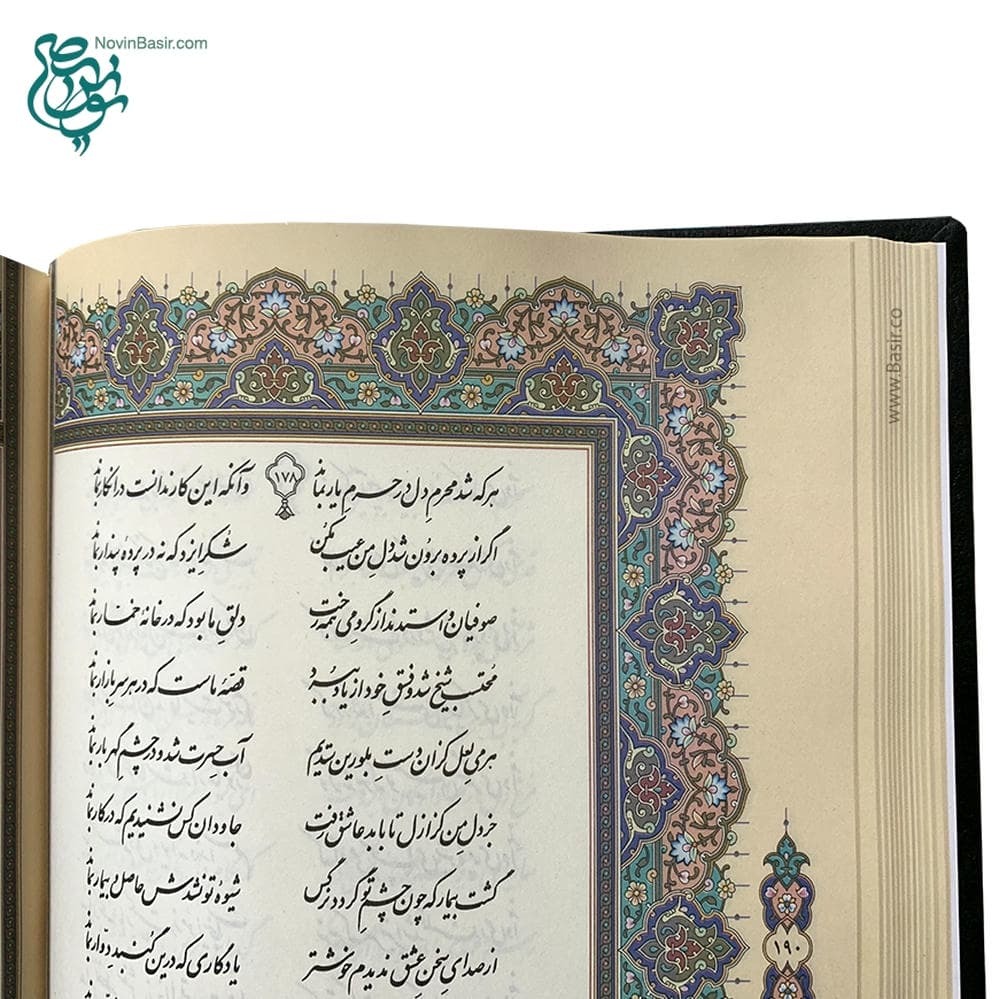 NovinBasir.com
www.Basir.co
هر که شد محرمِ دل در حرمِ یار بماند ۱۷۸ وآنکه این کار ندانست در انکار بماند
اگر از پرده برون شد دلِ من عیب مکن شکرِ ایزد که نه در پردهٔ پندار بماند
صوفیان واستدند از گروِ می همه رخت دلقِ ما بود که در خانهٔ خمّار بماند
محتسب شیخ شد و فسقِ خود از یاد ببرد قصّهٔ ماست که در هر سرِ بازار بماند
هر میِ لعل کزان دستِ بلورین ستدیم آبِ حسرت شد و در چشمِ گهربار بماند
جز دلِ من کز ازل تا به ابد عاشق رفت جاودان کس نشنیدیم که در کار بماند
گشت بیمار که چون چشمِ تو گردد نرگس شیوهٔ تو نشدش حاصل و بیمار بماند
از صدای سخنِ عشق ندیدم خوشتر یادگاری که درین گنبدِ دوّار بماند
۱۹۰